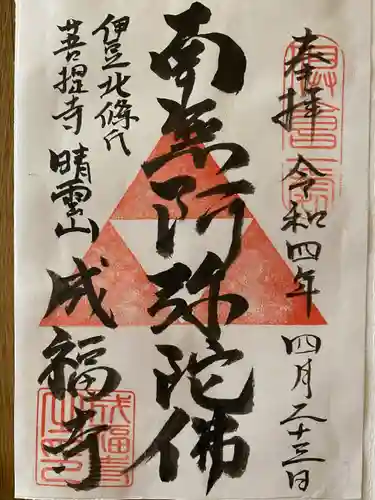 奉拝
令和四年
四月二十三日
南無阿弥陀佛
伊豆北條氏
菩提寺
晴雲山
成福寺